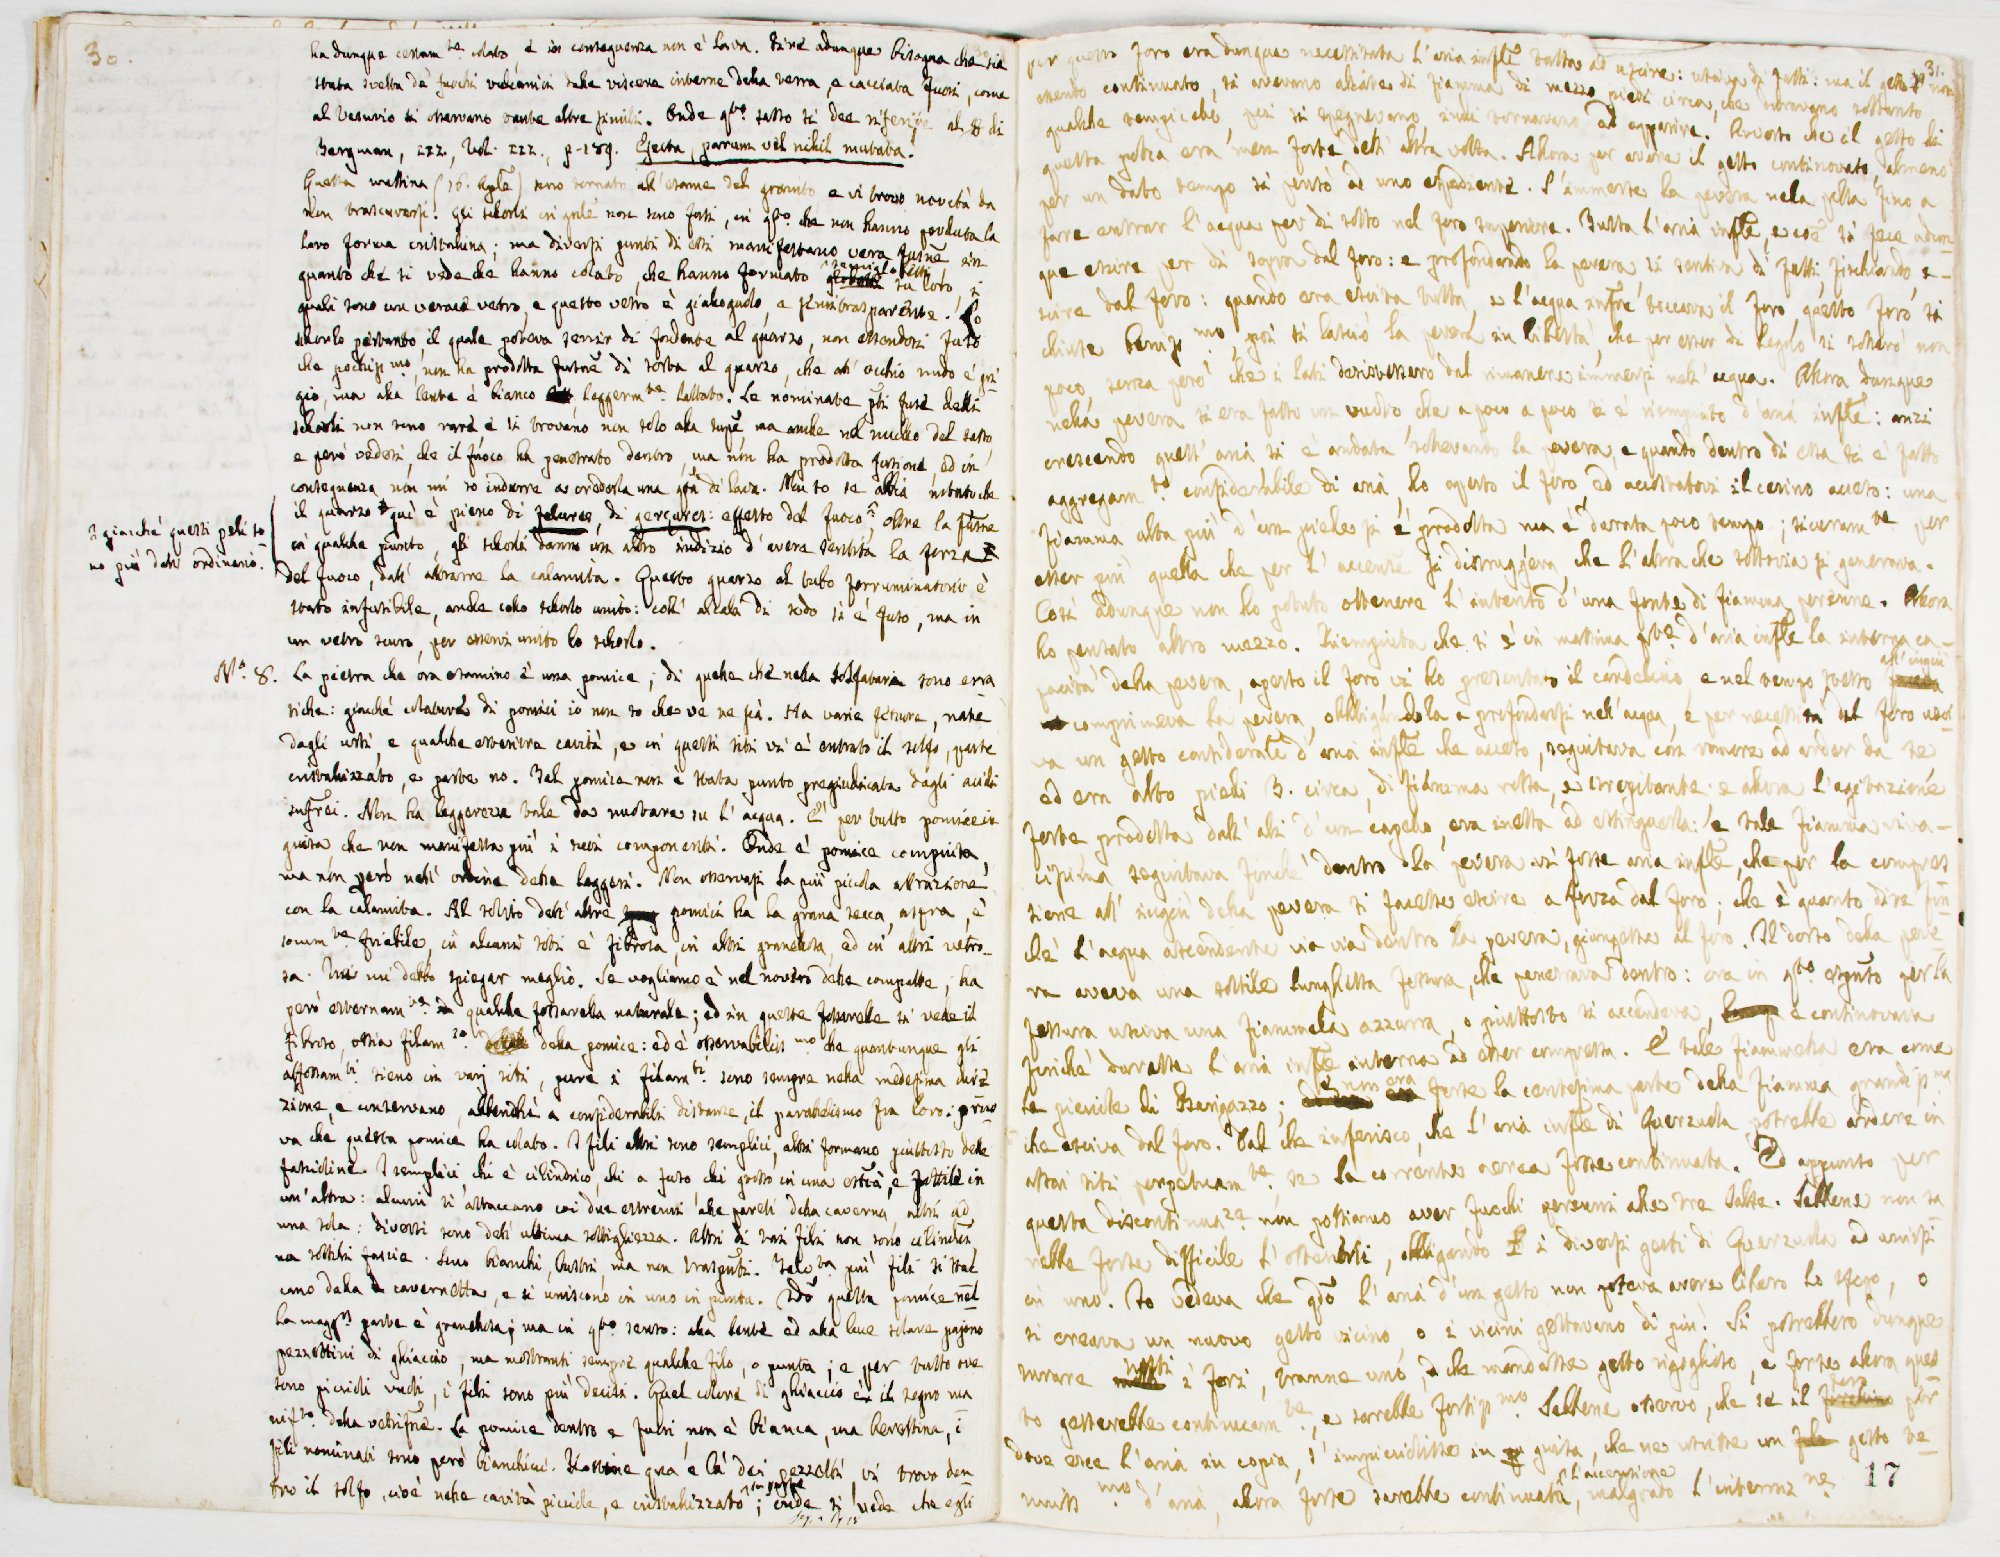 30.
ha dunque certam.te colato, e in conseguenza non è lava. Direi adunque bisogna che sia
stata svelta da' fuochi vulcanici dalle viscere interne della terra, e cacciata fuori, come
al Vesuvio si osservano tante altre simili. Onde q.to sasso si dee riferire al § di
Bergman, III., Vol. III., p-189. Ejecta, parum vel nihil mutata.
Questa mattina (16. Aple) sono tornato all'esame del granito, e vi trovo novità da
non trascurarsi. Gli schorli in gnle non sono fusi, in q.to che non hanno perduta la
loro forma cristallina; ma diversi punti di essi manifestano vera fusne in
quanto che si vede che hanno colato, che hanno formato su loro, i
quali sono un verace vetro, e questo vetro è giallognolo, e semitrasparente. Lo
schorlo pertanto, il quale poteva servir di fondente al quarzo, non essendosi fuso
che pochiss.mo, non ha prodotta fusne di sorta al quarzo, che all'occhio nudo è gri
gio, ma alla lente è bianco leggerm.te lattato. Le nominate fusi delli
schorli non sono rare e si trovano non solo alla supe ma anche nel nucleo del sasso,
e però vedesi, che il fuoco ha penetrato dentro, ma non ha prodotta fusione, ed in
conseguenza non mi so indurre a crederla una di lava. Non so se abbia notato che
il quarzo qui è pieno di pelurie, di gerçures: effetto del fuoco; oltre la fusne
in qualche punto, gli schorli danno un altro indizio d'avere sentita la forza
del fuoco, dall'attrarre la calamita. Questo quarzo al tubo ferruminatorio è
stato infusibile, anche collo schorlo unito: coll'alcali di sodo si è fuso, ma in
un vetro scuro, per esservi unito lo schorlo.
giacchè questi peli so
no più dell'ordinario.
N.o 8. La pietra che ora esamino è una pomice, di quelle che nella solfatara sono erra
tiche: giacchè colature di pomici io non so che ve ne sia. Ha varie fessure, nate
dagli urti, e qualche esteriore cavità, e in questi siti vi è entrato il solfo, parte
cristallizzato, e parte no. Tal pomice non è stata punto pregiudicata dagli acidi
sulfrei. Non ha leggerezza tale da nuotare su l'acqua. È per tutto pomice in
guisa che non manifesta più i suoi componenti. Onde è pomice compiuta,
ma non però nell'ordine delle leggeri. Non osservasi la più piccola attrazione
con la calamita. Al solito dell'altre pomici ha la grana secca, aspra, è
somm.te friabile, in alcuni siti è fibrosa, in altri granellosa, ed in altri vetro-
sa. Qui mi debbo spiegar meglio. Se vogliamo è nel novero delle compatte, ha
però esternam.te qualche fossarella naturale; ed in queste fossarelle si vede il
fibroso, ossia filam.so della pomice: ed è osservabiliss.mo che quantunque gli
affossam.ti sieno in varj siti, pure i filam.ti sono sempre nella medesima direz
zione, e conservano, abbenchè a considerabili distanze, il parallelismo fra loro: pruo
va che questa pomice ha colato. I fili altri sono semplici, altri formano piuttosto delle
fascioline. I semplici chi è cilindrico, chi a fuso, chi grosso in una estrà, e sottile in
un'altra: alcuni si attaccano coi due estremi alle pareti della caverna, altri ad
una sola: diversi sono dell'ultima sottigliezza. Altri di tai fili non sono cilindri
ma sottili fascie. Sono bianchi, lustri, ma non traspnti. Talvta più fili si stac
cano dalla cavernetta, e si uniscono in uno in punta. Tdo questa pomice nel
la magg.r parte è granellosa; ma in q.to senso: alla lente ed alla luce solare pajono
pezzettini di ghiaccio, ma mostranti sempre qualche filo, o punta; e per tutto ove
sono piccioli vuoti, i fili sono più decisi. Quel colore di ghiaccio è il segno ma
nif.to della vetrifne. La pomice dentro e fuori non è bianca, ma berettina, i
fili nominati sono però bianchicci. Rottine qua e là dei pezzetti, vi trovo den
tro il solfo, cioè nelle cavità picciole, e cristallizzato; onde si vede che egli
31.
per questo foro era dunque necessitata l'aria infle tutta ad uscire: usciva di fatti: ma il getto non
essendo continuato, si avevano alzate di fiamma di mezzo piedi circa, che duravano soltanto
qualche tempicciò, poi si spegnevano indi tornavano ad apparire. Avverto che il getto di
questa polla era men forte dell'altra volta. Allora per avere il getto continovato, almeno
per un dato tempo si pensò ad uno espediente. S'immerse la pevera nella polla, fino a
fare entrar l'acqua per di sotto nel foro superiore. Tutta l'aria infle, e così si fece adun
que escire per di sopra dal foro: e profondando la pevera si sentiva di fatti fischiando, e-
scire dal foro: quando era escita tutta, e l'acqua toccava il foro, questo foro si
chiuse beniss.mo, poi si lasciò la pevera in libertà, che per esser di legno, si sollevò non
poco, senza però che i lati desistessero dal rimanere immersi nell'acqua. Allora dunque
nella pevera si era fatto un vuoto, che a poco a poco si è riempiuto d'aria infle: anzi
crescendo quest'aria si è andata sollevando la pevera, e quando dentro di essa si è fatto
aggregam.to considerabile di aria, ho aperto il foro, ed accostatovi il cerino acceso: una
fiamma alta più d'un piede si è prodotta ma è durata poco tempo; sicuram.te per
esser più quella che per l'accensne si distruggeva, che l'altra che tuttavia si generava.
Così adunque non ho potuto ottenere l'intento d'una fonte di fiamma perenne. Allora
ho pensato altro mezzo. Riempiuta che si è in massima p.te d'aria infle la interna ca-
pacità della pevera, aperto il foro vi ho presentato il candelino, e nel tempo stesso all'ingiù
comprimeva la pevera, obbligandola a profondarsi nell'acqua, e per necessità dal foro usci
va un getto considerale d'aria infle che acceso, seguitava con romore ad arder da se
ed era alto piedi 3. circa, di fiamma rossa, e crepitante e allora l'agitazione
forte prodotta dall'ali d'un capello, era inetta ad estinguerla: e tale fiamma viva-
cissima seguitava finchè dentro la pevera vi fosse aria infle, che per la compres
sione all'ingiù della pevera si facesse escire a forza dal foro; che è quanto dire fin
chè l'acqua ascendente via via dentro la pevera, giungesse al foro. Il dorso della peve
ra aveva una sottile lunghetta fessura, che penetrava dentro: ora in q.to esprnto per la
fessura usciva una fiammella azzurra, o piuttosto si accendeva, e continovava
finchè durasse l'aria infle interna ad esser compressa. E tale fiammella era come
le picciole di Barigazzo; non era forse la centesima parte della fiamma grandiss.ma
che esciva dal foro. Dal che inferisco, che l'aria infle di Querzuola potrebbe ardere in
alcuni siti perpetuam.te, se la corrente aerea fosse continuata. Ed appunto per
questa discontinuaz.ne non possiamo aver fuochi perenni alle tre Salse. Sebbene non sa
rebbe forse difficile l'ottenerli, obbligando i diversi getti di Querzuola ad unirsi
in uno. Io vedeva che qdo l'aria d'un getto non poteva avere libero lo sfogo, o
si creava un nuovo getto vicino, o i vicini gettavano di più. Si potrebbero dunque
turare molti i fori, tranne uno, che mandasse getto rigoglioso, e forse allora ques
to getterebbe continuam.te, e sarebbe fortiss.mo. Sebbene osservo, che se il foro per
dove esce l'aria in copia, s'impicciolisse in guisa, che ne uscisse un getto te-
nuiss.mo d'aria, allora forse sarebbe continuata l'accensione, malgrado l'interruz.ne
17